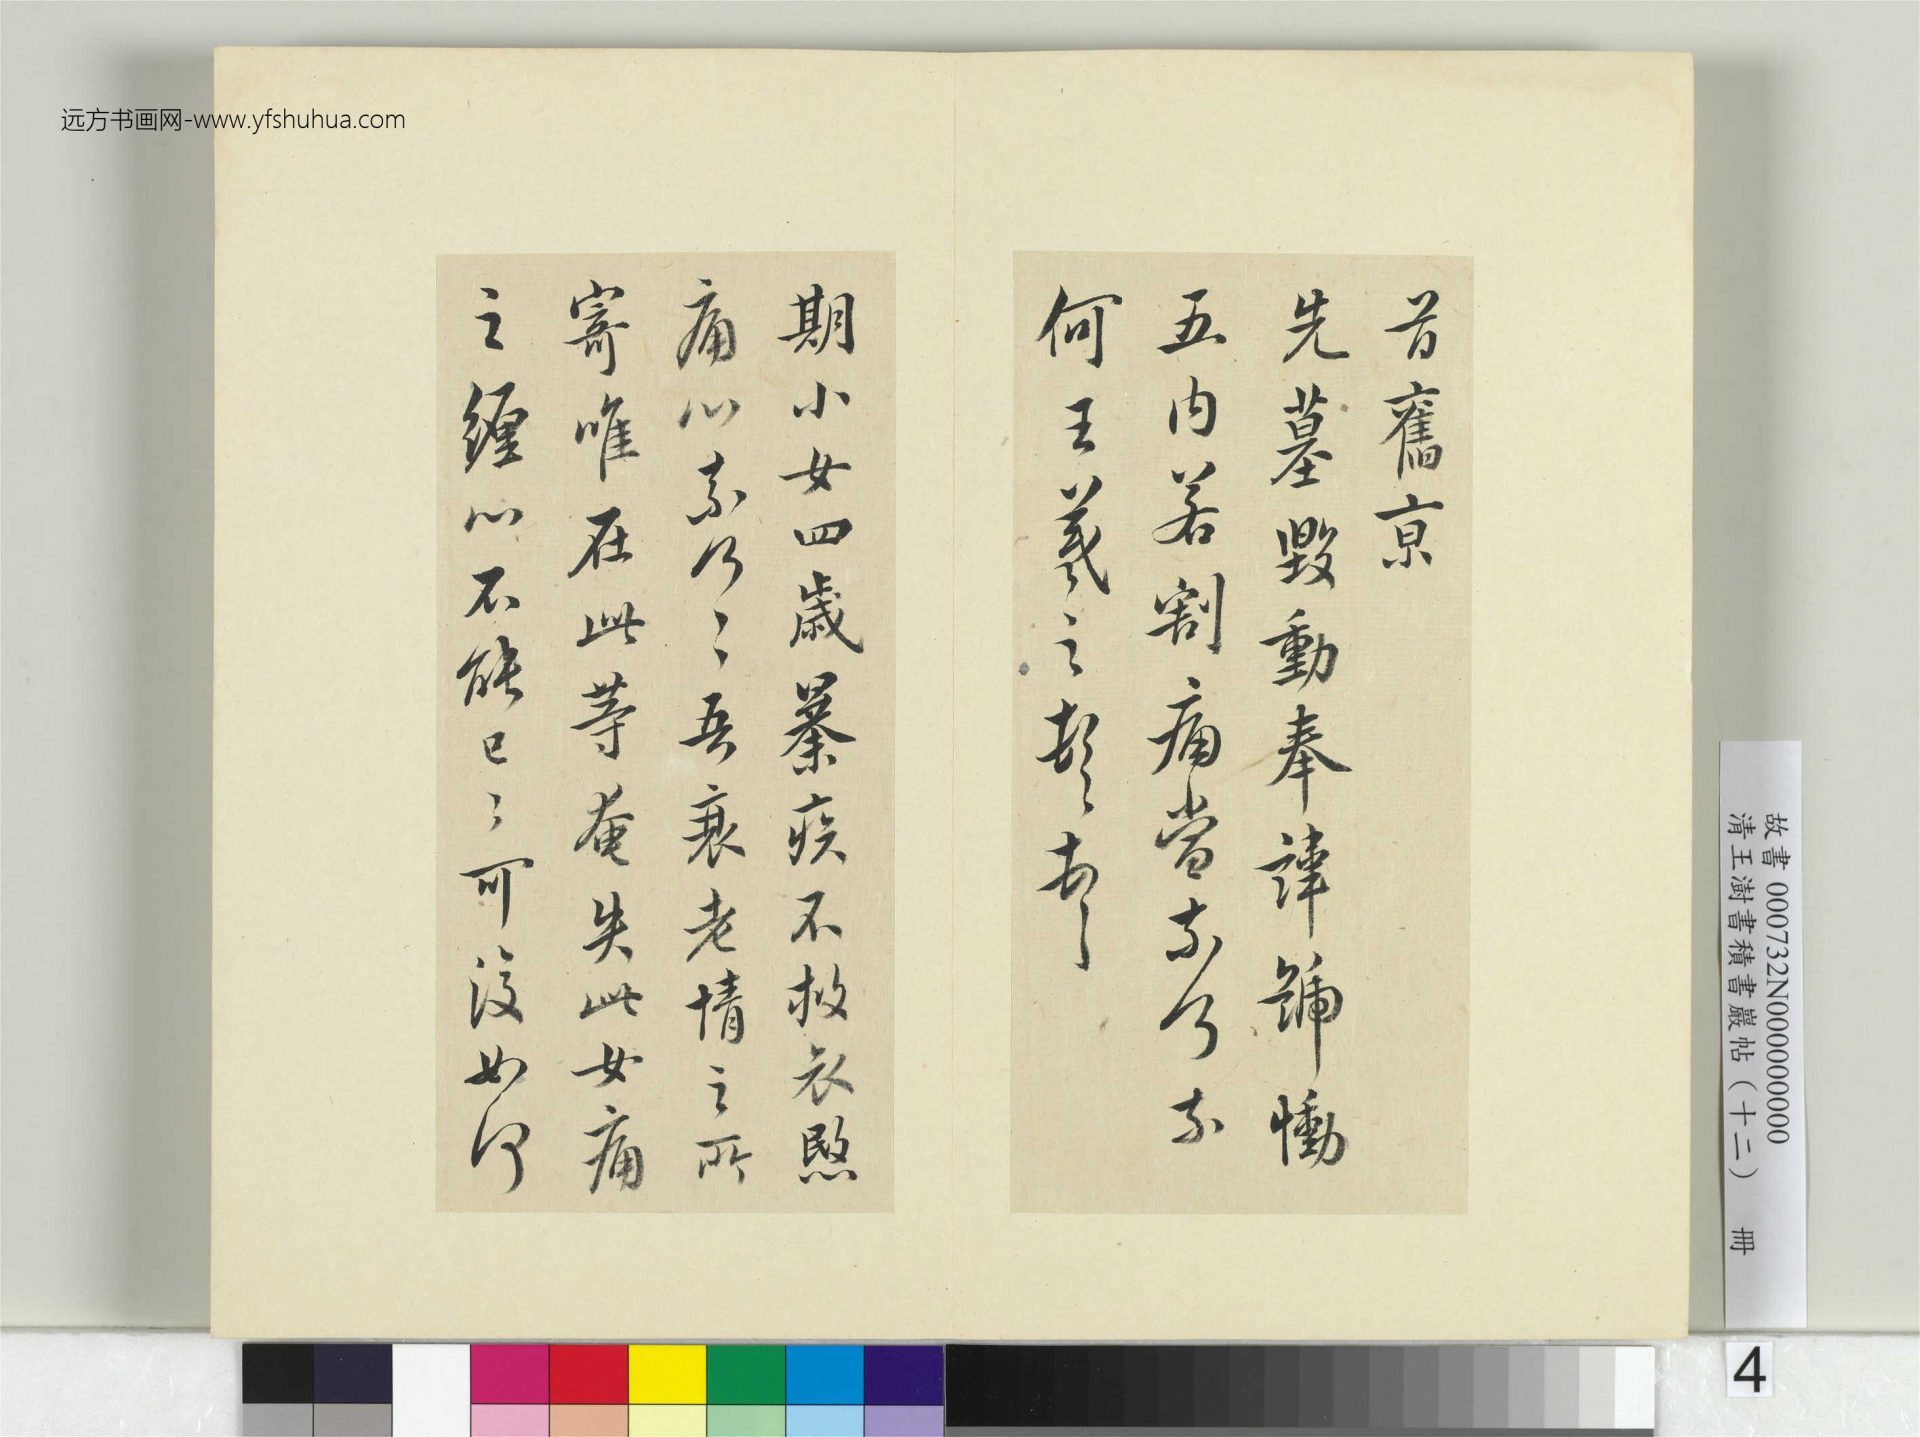 远方书画网-www.yfshuhua.com
昔舊京
先墓毀動奉諱號慟
五内若割痛當奈何奈
何王羲之頓首
期小女四歲暴疾不救哀愍
痛心奈何〻〻吾衰老情之所
寄唯在此等奄失此女痛
之纏心不能已〻可復如何
故書 000732N000000000
清王澍書積書巖帖(十二) 冊
4